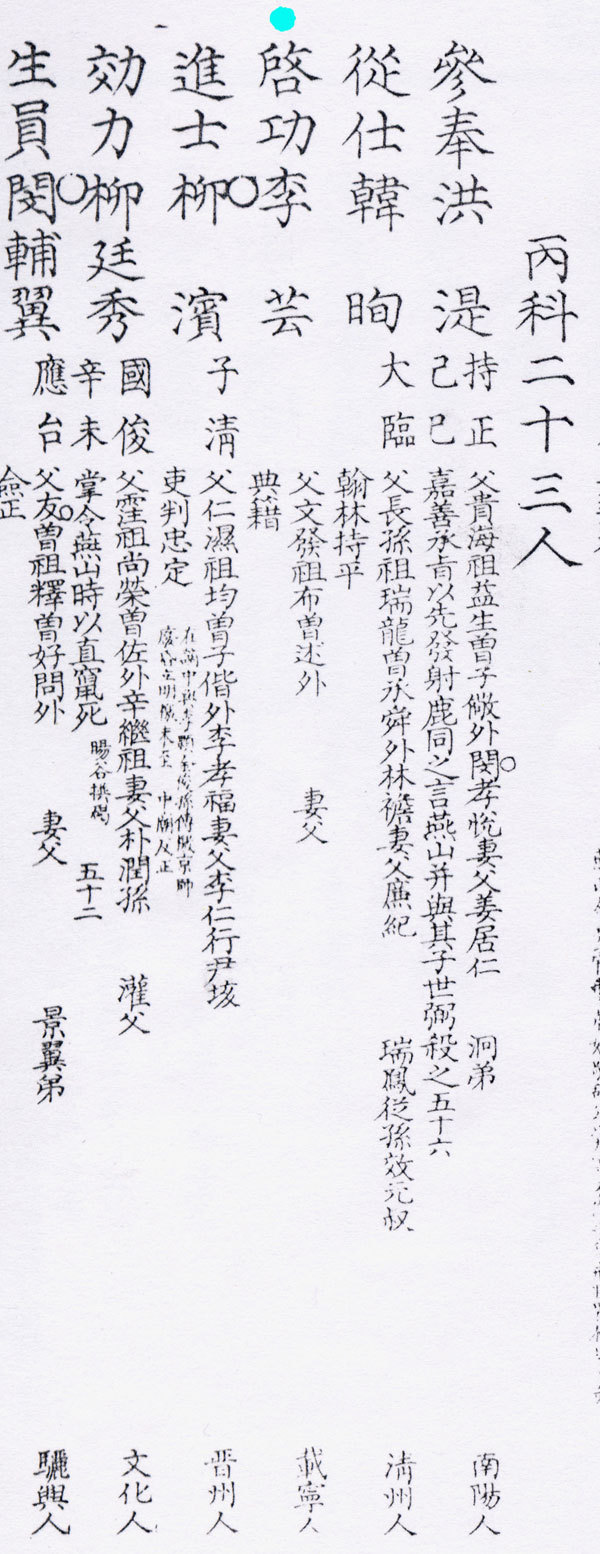 丙科二十三人
參奉洪 湜 持正 己巳 父貴海祖益生曾子儆外閔孝悅妻父姜居仁 泂弟 南陽人
嘉善承旨以先發射鹿同之言燕山并與其子世弼殺之五十六
從仕韓 昫 大臨 父長孫祖瑞龍曾承舜外林襜妻父廉紀 瑞鳳從孫效元叔 淸州人
翰林持平
啓功李 芸 父文發祖布曾述外 妻父 載寧人
典籍
進士柳 濱 子淸 父仁濕祖均曾子偕外李孝福妻父李仁行尹垓 晋州人
吏判忠定
在謫中與李顆金俊孫傳檄京師
中廟反正
効力柳廷秀 國俊 辛未 父霔祖尚榮曾佐外辛繼祖妻父朴潤孫 灌父 文化人
掌令燕山時以直竄死 暘谷撰碣 五十二
生員閔輔翼 應台 父友曾祖釋曾好問外 妻父 景翼弟 驪興人
僉正